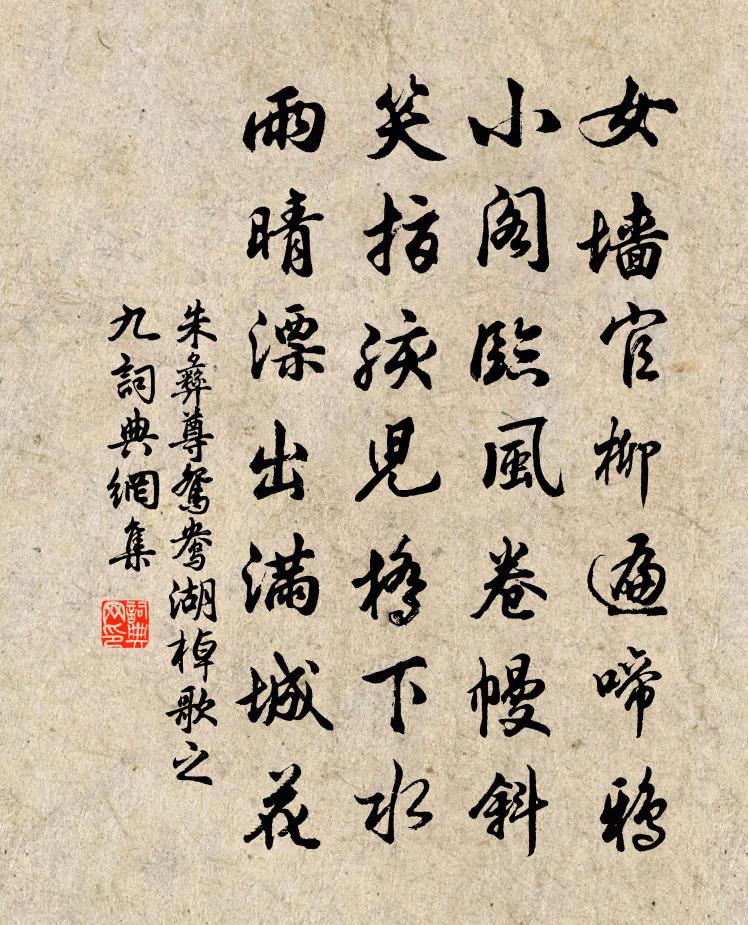 女墙官柳遍啼鴉
小閣臨風卷幔斜
笑指孩兒橋下水
雨晴漂出滿城花
朱彝尊鴛鴦湖棹歌之
九詞典網集
詞典
网印